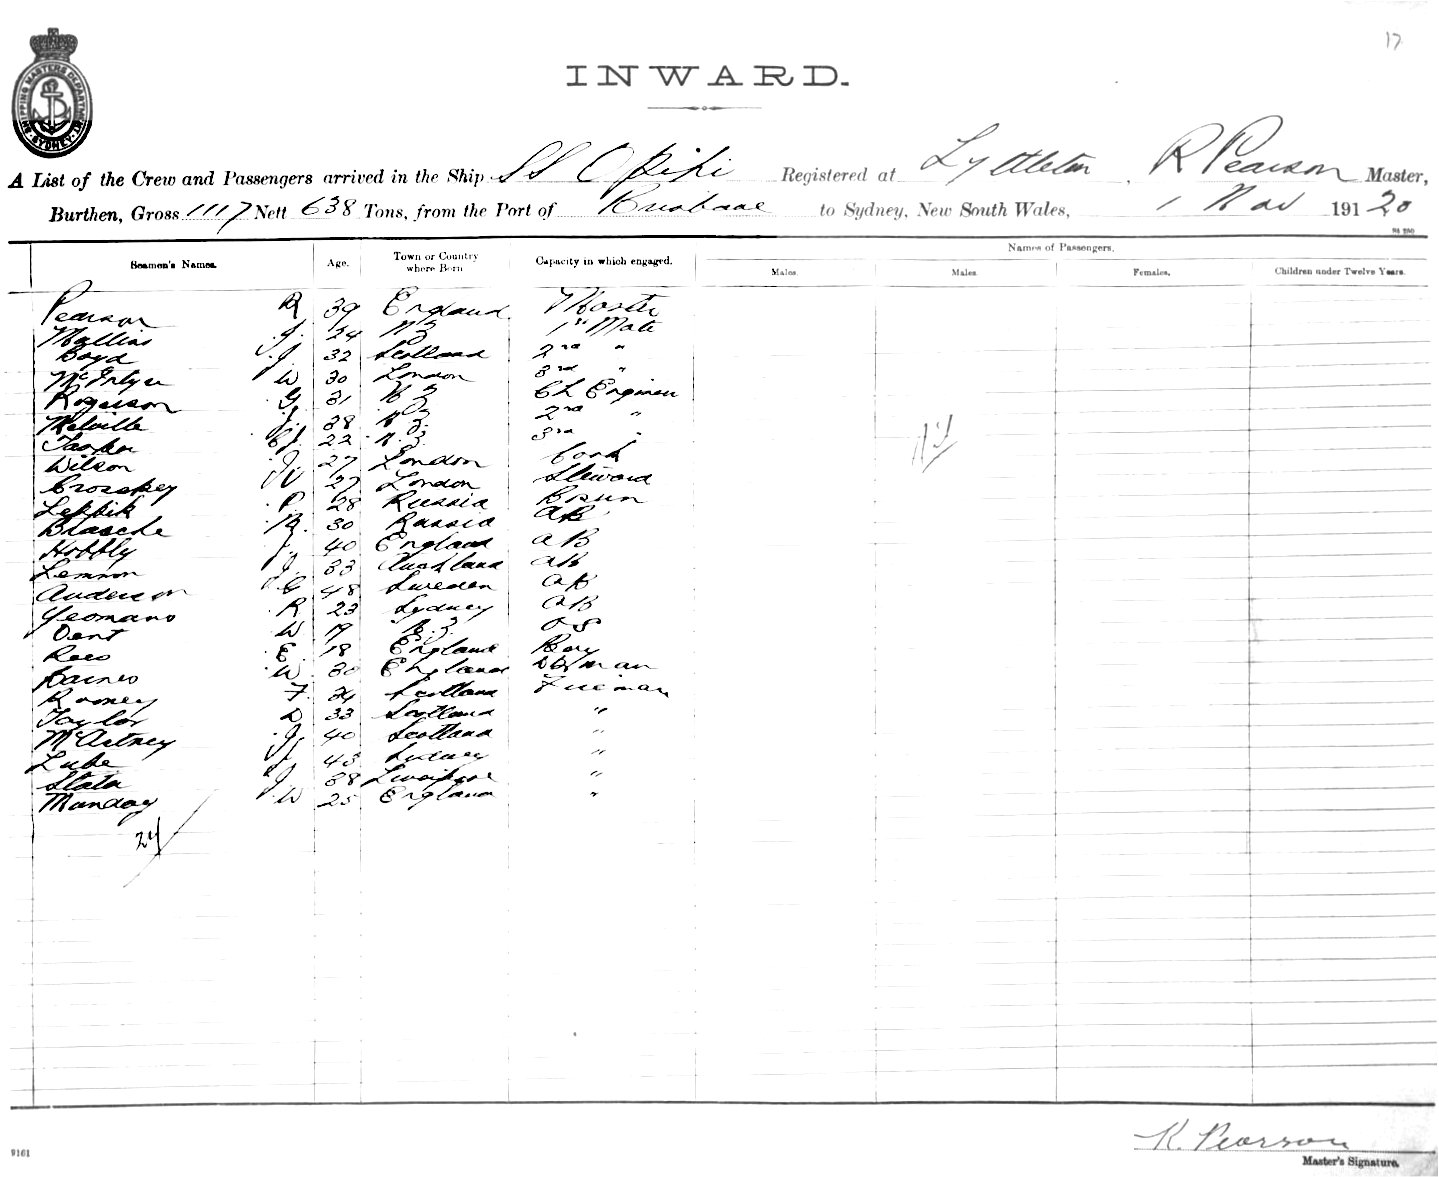 17
INWARD.
SHIPPING MASTERS DEPARTMENT SYDNEY
A List of the Crew and Passengers arrived in the Ship SS Opihi Registered at Lyttleton, R Pearson Master,
Burthen, Gross 1117 Nett 638 Tons, from the Port of Brisbane to Sydney, New South Wales, 1 Nov 191 20
Names of Passengers.
Seamen's Names. Age. Town or Country where Born Capacity in which engaged. Males. Males. Females. Children under Twelve Years.
Pearson R 39 England Master
Mullins J. 24 NZ 1st Mate
Boyd J 32 Scotland 2nd "
McIntyre W 30 London 3rd "
Rogerson G 31 NZ Ch Engineer
Melville J. 38 NZ. 2nd "
22 N.Z. 3rd "
Wilson J 27 London Cook
Crosskey W 27 London Steward
Leppik P. 28 Russia Bosun
Blasche 30 Russia AB
Hobbly J. 40 England AB
Lemmon J. 33 Auckland AB
Anderson G 48 Sweden AB
Yeomans R 23 Sydney AB
Dent W 19 N.Z. OS
Rees E. 18 England Boy
Baines W. 30 England Dkyman
Rooney F. 24 Scotland Fireman
Taylor D 33 Scotland "
McArtney J. 40 Scotland "
Luke J 43 Sydney "
Slater J 38 Liverpool "
Munday W 25 England "
Nil
24
R. Pearson
Master's Signature.
9161